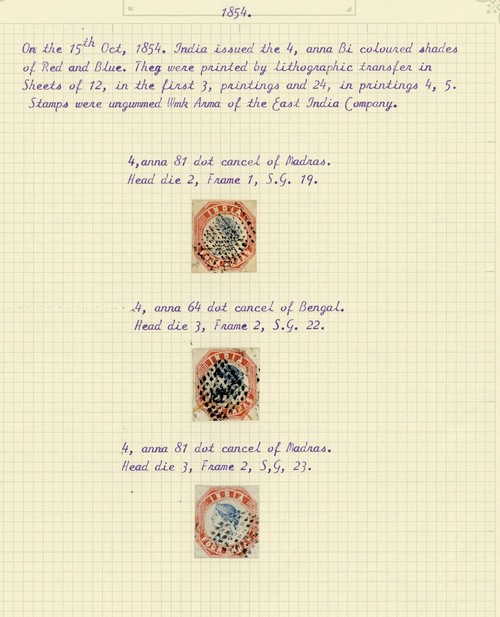 1854.
On the 15th Oct, 1854. India issued the 4, anna Bi coloured shades
of Red and Blue. They were printed by lithographic transfer in
Sheets of 12, in the first 3, printings and 24, in printings 4, 5.
Stamps were ungummed Wmk Arma of the East India Company.
4, anna 81 dot cancel of Madras.
Head die 2, Frame 1, S.G. 19.
INDIA
4, anna 64 dot cancel of Bengal.
Head die 3, Frame 2, S.G. 22.
INDIA
ANNAS
4, anna 81 dot cancel of Madras.
Head die 3, Frame 2, S,G, 23.
INDIA
FOUR